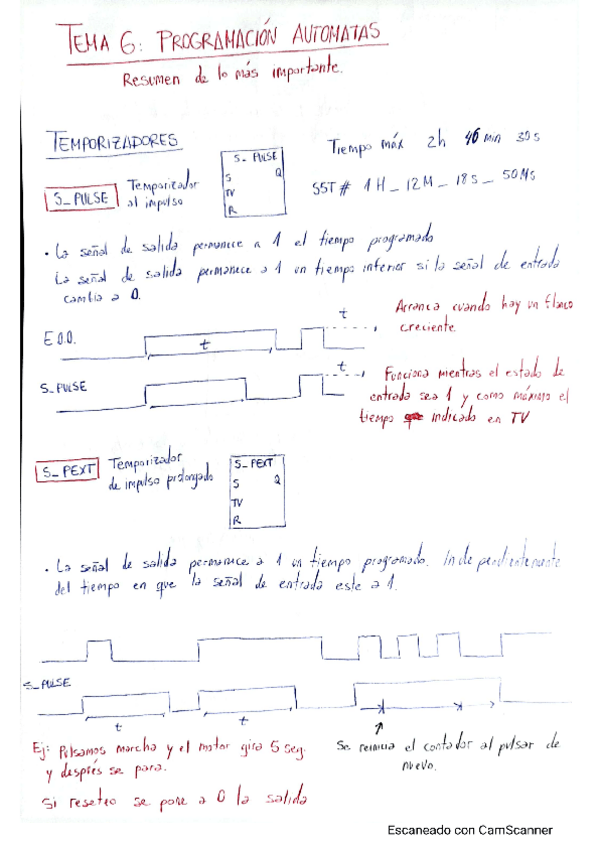 TEMA 6: PROGRAMACIÓN AUTOMATAS
Resumen de lo más importante.
TEMPORIZADORES
Tiempo máx 2h 46 min 30s
S5T# 1H_12M_18s_50Ms
S_PULSE
Temporizador
al impulso
S_PULSE
S Q
TV
R
• La señal de salida permanece a 1 el tiempo programado
La señal de salida permanece a 1 un tiempo inferior si la señal de entrada
cambia a 0.
E 0.0.
t
t
Arranca cuando hay un flanco
creciente
S_PULSE
t
Funciona mientras el estado de
entrada sea 1 y como máximo el
tiempo que indicado en TV
S_PEXT
Temporizador
de impulso prolongado
S_PEXT
S Q
TV
R
• La señal de salida permanece a 1 un tiempo programado. Independientemente
del tiempo en que la señal de entrada este a 1.
S_PULSE
t
t
Ej: Pulsamos marcha y el motor gira 5 seg.
y después se para.
Si reseteo se pone a 0 la salida
Se reinicia el contador al pulsar de
nuevo.
Escaneado con CamScanner